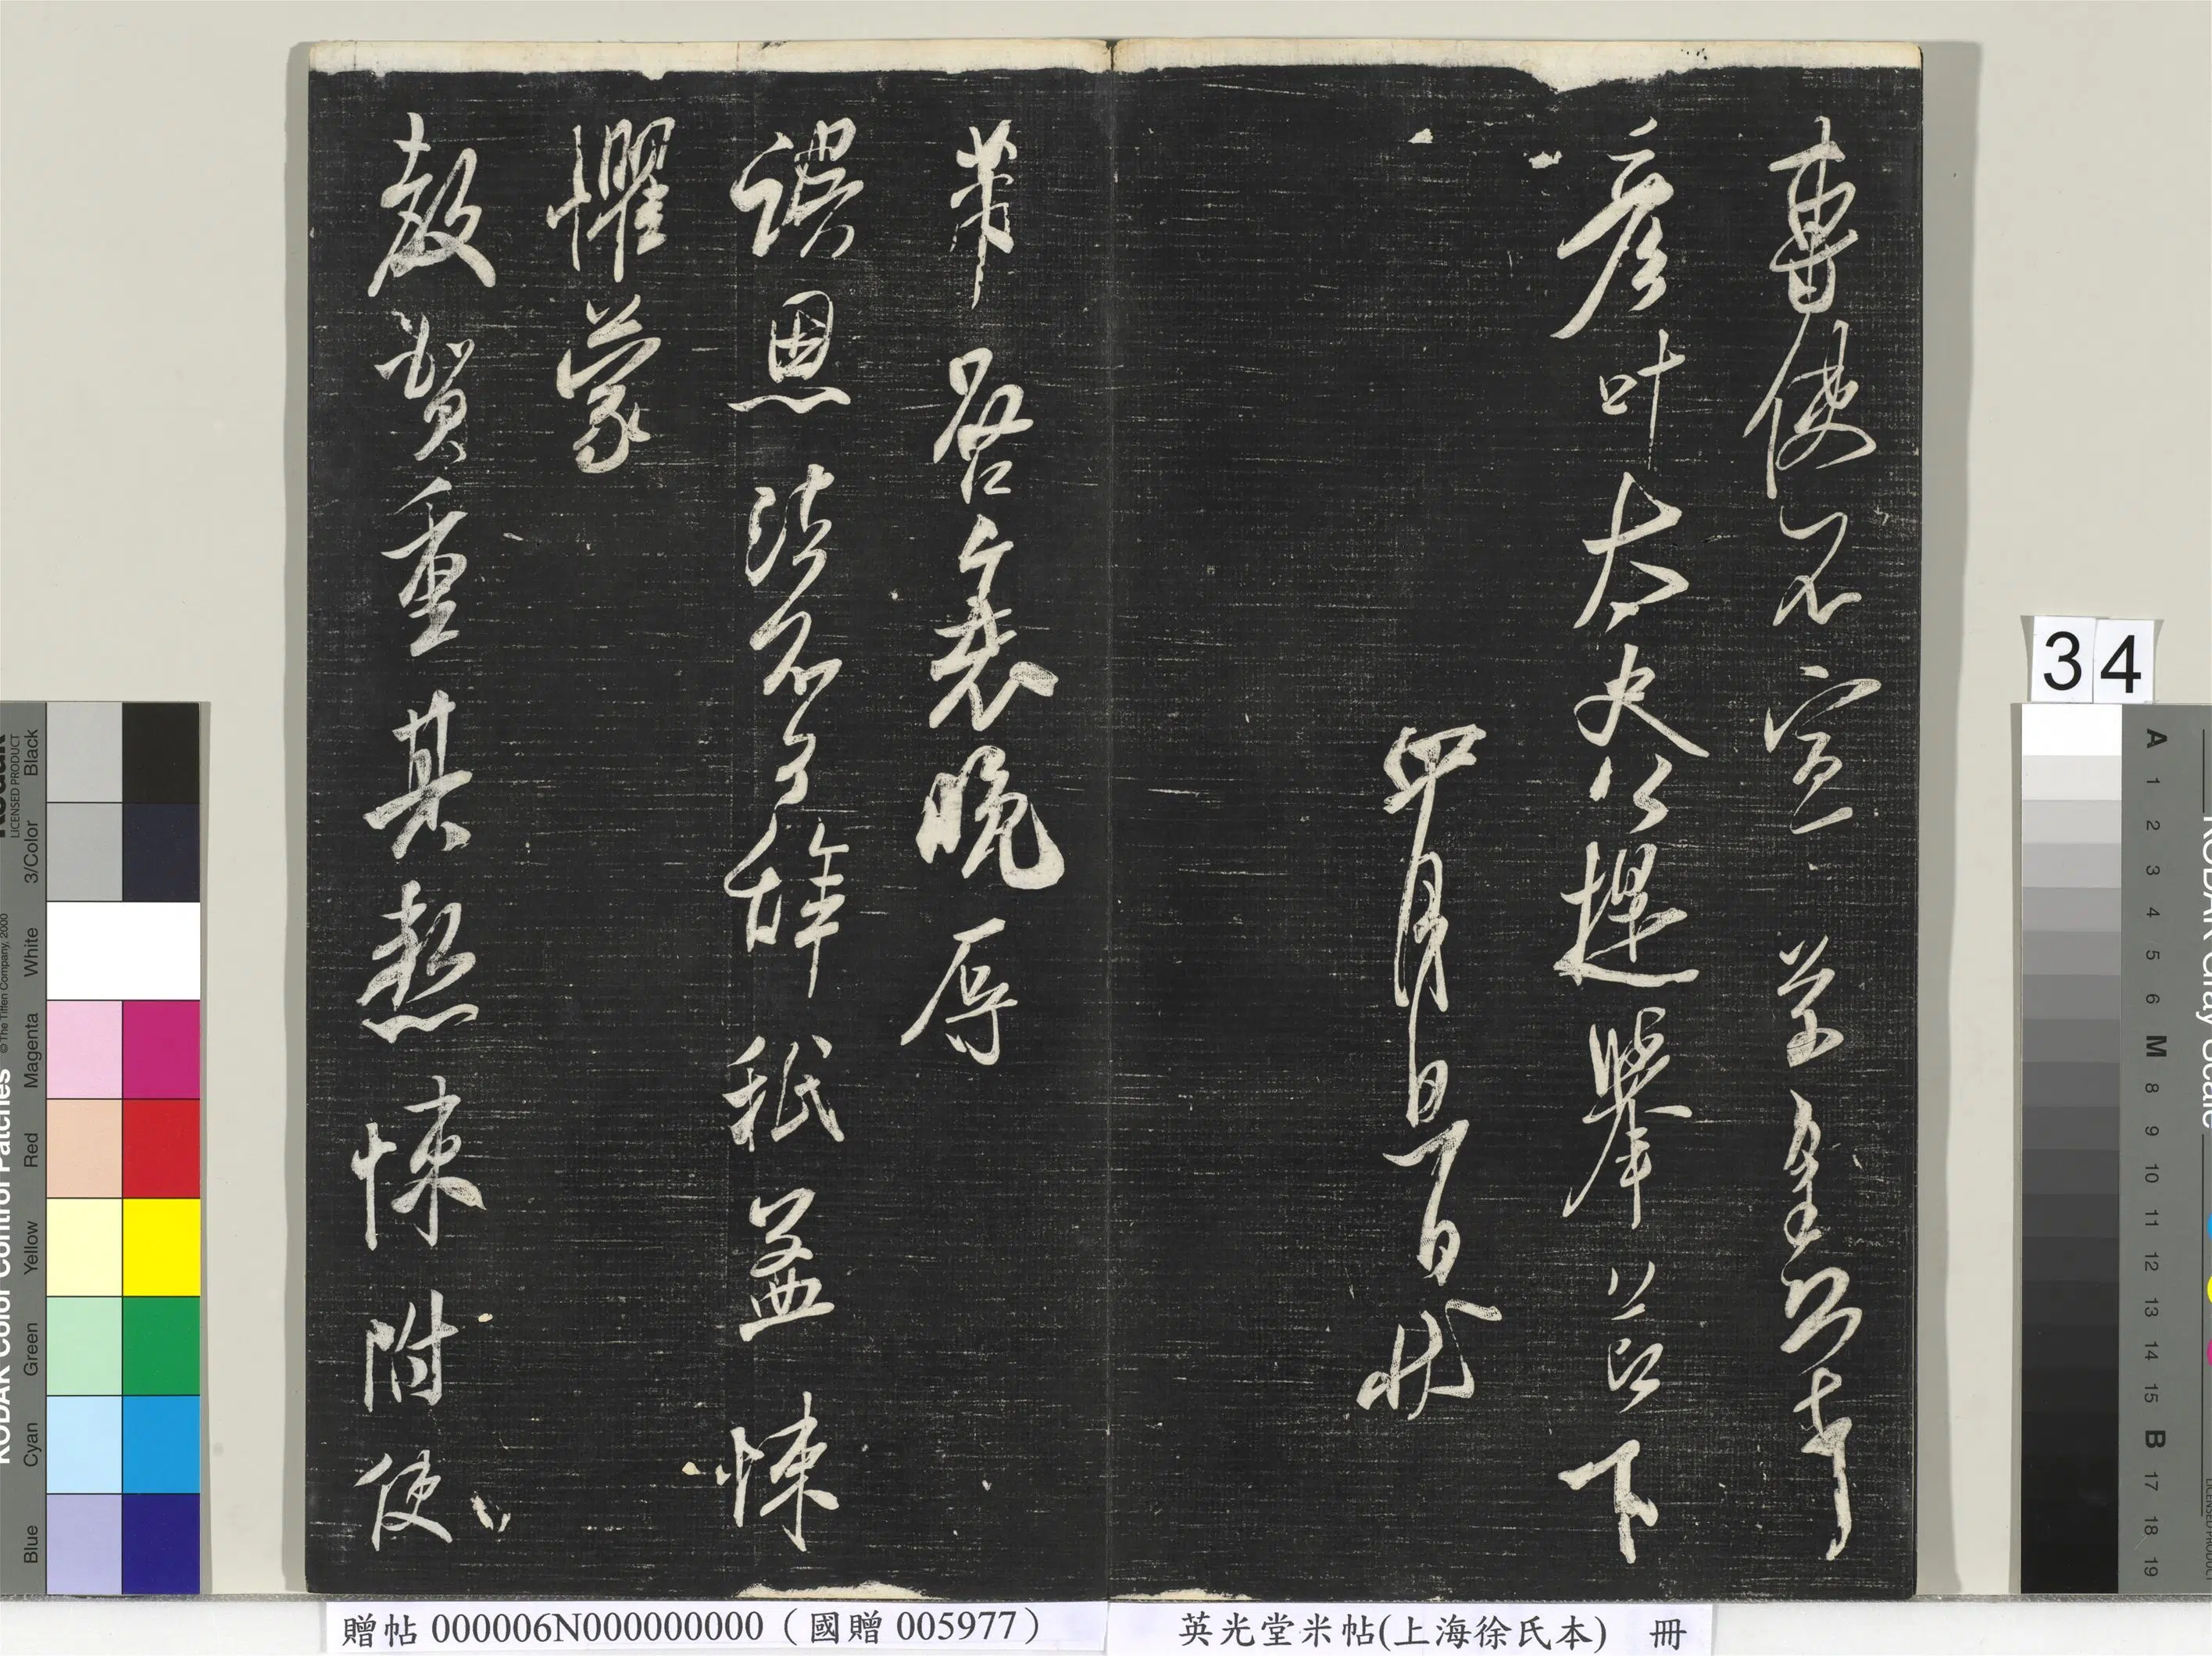 專使不宣 芾皇恐拜
彥叶太史公提舉茲詔下
四月日百狀
芾啓衰晚辱
誤恩陛不可辭秖益悚
懼蒙
教賀重其慙悚附使
34
贈帖 000006N000000000（國贈 005977）
英光堂米帖(上海徐氏本) 冊
KODAK Color Control Patches
© The Tiffen Company, 2000
Kodak
LICENSED PRODUCT
Blue Cyan Green Yellow Red Magenta White 3/Color Black
KODAK Gray Scale
A 1 2 3 4 5 6 M 8 9 10 11 12 13 14 15 B 17 18 19